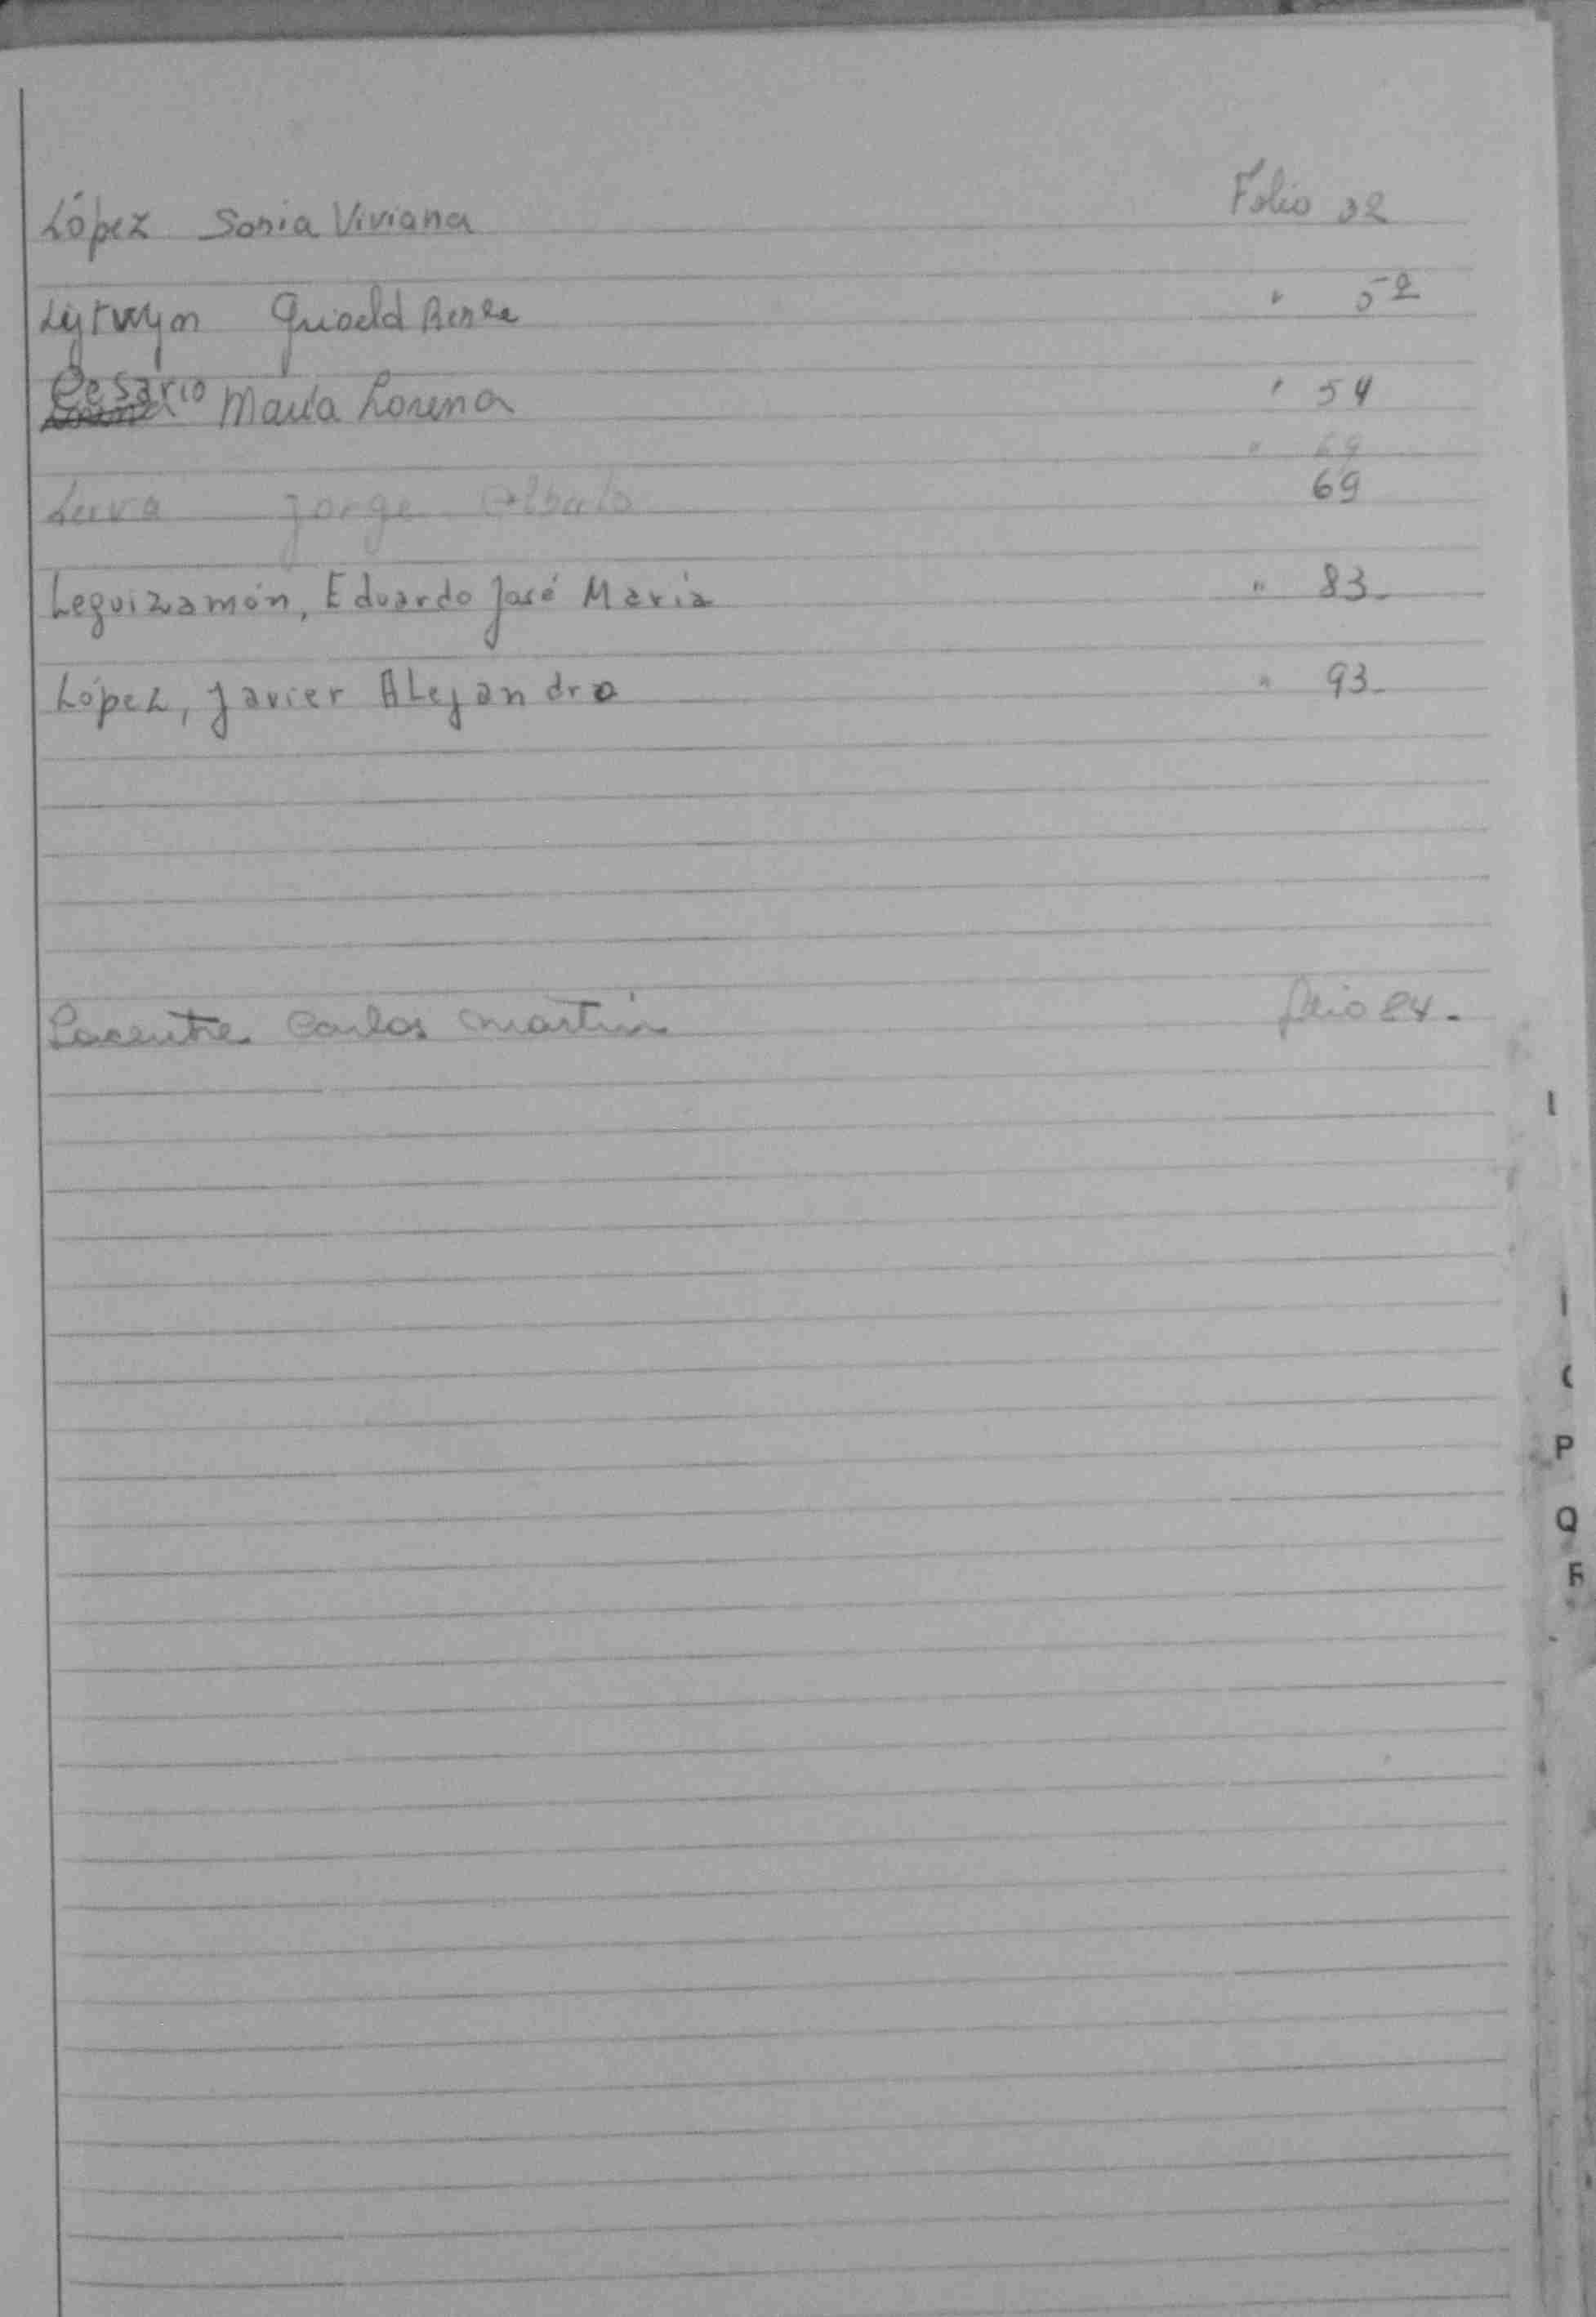 López Sonia Viviana Folio 32
Lytwyn Griseld Renee " 52
Cesario María Lorena " 54
" 69
Leiva Jorge Alberto 69
Leguizamón, Eduardo José María " 83-
López, Javier ALejandro " 93-
Lacentre Carlos Martin folio 84.
P
Q